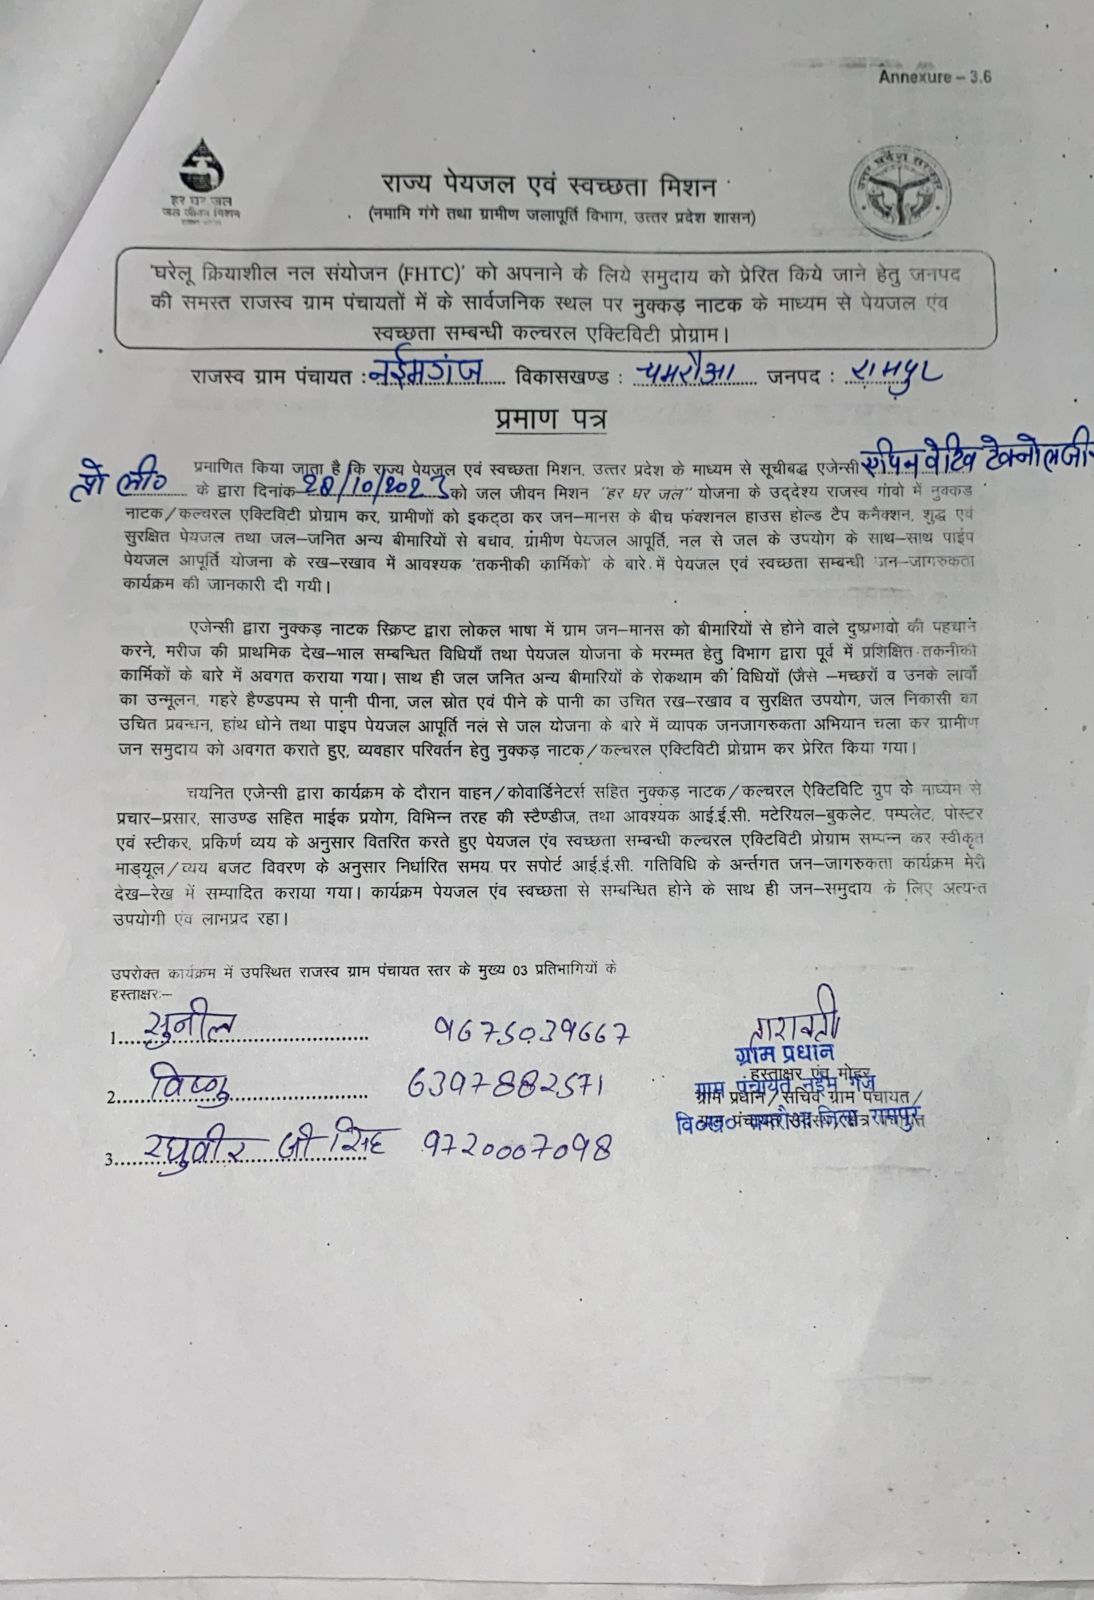 Annexure – 3.6
हर घर जल
जल जीवन मिशन
उत्तर प्रदेश सरकार
राज्य पेयजल एवं स्वच्छता मिशन
(नमामि गंगे तथा ग्रामीण जलापूर्ति विभाग, उत्तर प्रदेश शासन)
'घरेलू क्रियाशील नल संयोजन (FHTC)' को अपनाने के लिये समुदाय को प्रेरित किये जाने हेतु जनपद
की समस्त राजस्व ग्राम पंचायतों में के सार्वजनिक स्थल पर नुक्कड़ नाटक के माध्यम से पेयजल एंव
स्वच्छता सम्बन्धी कल्चरल एक्टिविटी प्रोग्राम।
राजस्व ग्राम पंचायत : नईमगंज विकासखण्ड : चमरौआ जनपद : रामपुर
प्रमाण पत्र
प्रमाणित किया जाता है कि राज्य पेयजल एवं स्वच्छता मिशन, उत्तर प्रदेश के माध्यम से सूचीबद्ध एजेन्सी टेक्नोलजी
ली० के द्वारा दिनांक 28/10/2023 को जल जीवन मिशन "हर घर जल" योजना के उद्देश्य राजस्व गांवो में नुक्कड़
नाटक/कल्चरल एक्टिविटी प्रोग्राम कर, ग्रामीणों को इकट्ठा कर जन–मानस के बीच फंक्शनल हाउस होल्ड टैप कनैक्शन, शुद्ध एवं
सुरक्षित पेयजल तथा जल–जनित अन्य बीमारियों से बचाव, ग्रामीण पेयजल आपूर्ति, नल से जल के उपयोग के साथ–साथ पाईप
पेयजल आपूर्ति योजना के रख–रखाव में आवश्यक 'तकनीकी कार्मिको' के बारे में पेयजल एवं स्वच्छता सम्बन्धी जन–जागरुकता
कार्यक्रम की जानकारी दी गयी।
एजेन्सी द्वारा नुक्कड़ नाटक स्क्रिप्ट द्वारा लोकल भाषा में ग्राम जन–मानस को बीमारियों से होने वाले दुष्प्रभावो की पहचान
करने, मरीज की प्राथमिक देख–भाल सम्बन्धित विधियाँ तथा पेयजल योजना के मरम्मत हेतु विभाग द्वारा पूर्व में प्रशिक्षित तकनीकी
कार्मिकों के बारे में अवगत कराया गया। साथ ही जल जनित अन्य बीमारियों के रोकथाम की विधियों (जैसे –मच्छरों व उनके लार्वा
का उन्मूलन, गहरे हैण्डपम्प से पानी पीना, जल स्रोत एवं पीने के पानी का उचित रख–रखाव व सुरक्षित उपयोग, जल निकासी का
उचित प्रबन्धन, हांथ धोने तथा पाइप पेयजल आपूर्ति नल से जल योजना के बारे में व्यापक जनजागरुकता अभियान चला कर ग्रामीण
जन समुदाय को अवगत कराते हुए, व्यवहार परिवर्तन हेतु नुक्कड़ नाटक/कल्चरल एक्टिविटी प्रोग्राम कर प्रेरित किया गया।
चयनित एजेन्सी द्वारा कार्यक्रम के दौरान वाहन/कोवार्डिनेटर्स सहित नुक्कड़ नाटक/कल्चरल ऐक्टिविटि ग्रुप के माध्यम से
प्रचार–प्रसार, साउण्ड सहित माईक प्रयोग, विभिन्न तरह की स्टैण्डीज, तथा आवश्यक आई.ई.सी. मटेरियल–बुकलेट, पम्पलेट, पोस्टर
एवं स्टीकर, प्रकिर्ण व्यय के अनुसार वितरित करते हुए पेयजल एंव स्वच्छता सम्बन्धी कल्चरल एक्टिविटी प्रोग्राम सम्पन्न कर स्वीकृत
माड्यूल/व्यय बजट विवरण के अनुसार निर्धारित समय पर सपोर्ट आई.ई.सी. गतिविधि के अर्न्तगत जन–जागरुकता कार्यक्रम मेरी
देख–रेख में सम्पादित कराया गया। कार्यक्रम पेयजल एंव स्वच्छता से सम्बन्धित होने के साथ ही जन–समुदाय के लिए अत्यन्त
उपयोगी एंव लाभप्रद रहा।
उपरोक्त कार्यक्रम में उपस्थित राजस्व ग्राम पंचायत स्तर के मुख्य 03 प्रतिभागियों के
हस्ताक्षर:–
1. सुनील 9675039667
2. विष्णु 6397882571
3. रघुवीर जी सिंह 9720007098
तारावती
ग्राम प्रधान
हस्ताक्षर एंव मोहर
ग्राम पंचायत नईम गंज
ग्राम प्रधान/सचिव ग्राम पंचायत/
वि०ख० चमरौआ जिला रामपुर